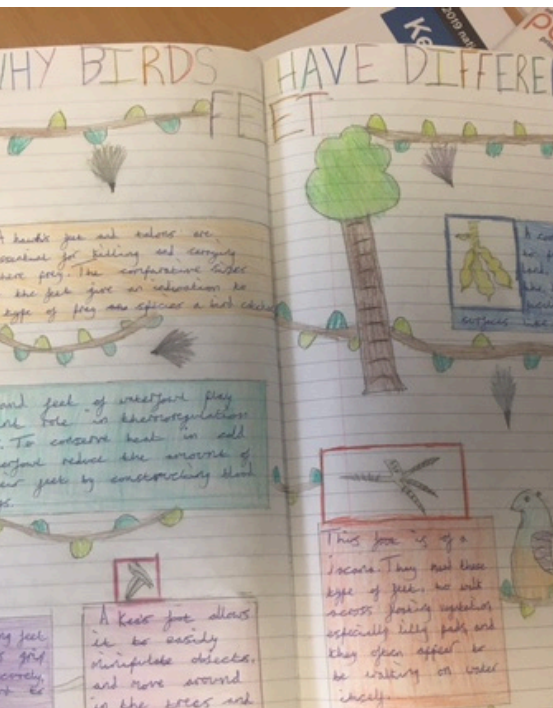 WHY BIRDS HAVE DIFFERE
FEET
2019 nati
Ke
A hawk's feet and talons are
essential for killing and carrying
there prey. The comparative sizes
the feet give an indication to
type of prey species a bird
and feet of waterfowl play
role in thermoregulation
To conserve heat in cold
erfowl reduce the amount of
eir feet by constructing blood
gs.
ng feet
grip
to
A Kea's foot allows
it to easily
minipulate objects,
and move around
in the trees and
surfaces
This foot is of a
Jacana. They need these
type of feet to walk
across floating vegetation
especially lilly pads, and
they often appear to
be walking on water
itself.